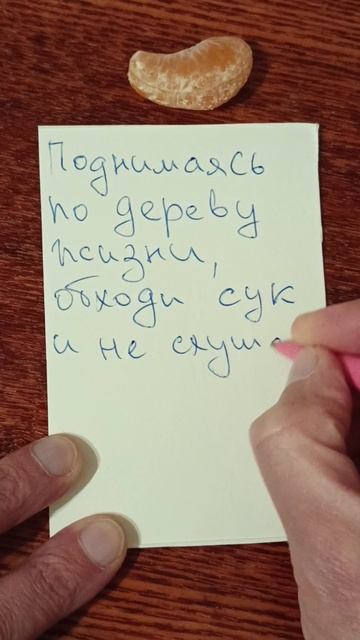 Поднимаясь
по дереву
жизни,
обходи сук
и не слуша